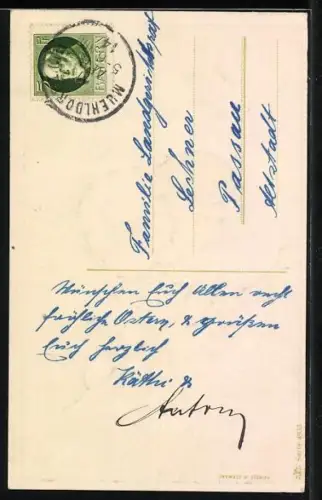 MUEHLDORF
BAYERN
Familie Landgerichtsrat
Lechner
Passau
Altstadt
Wünschen Euch Allen recht
fröhliche Ostern, & grüßen
Euch herzlich
Käthi &
Anton